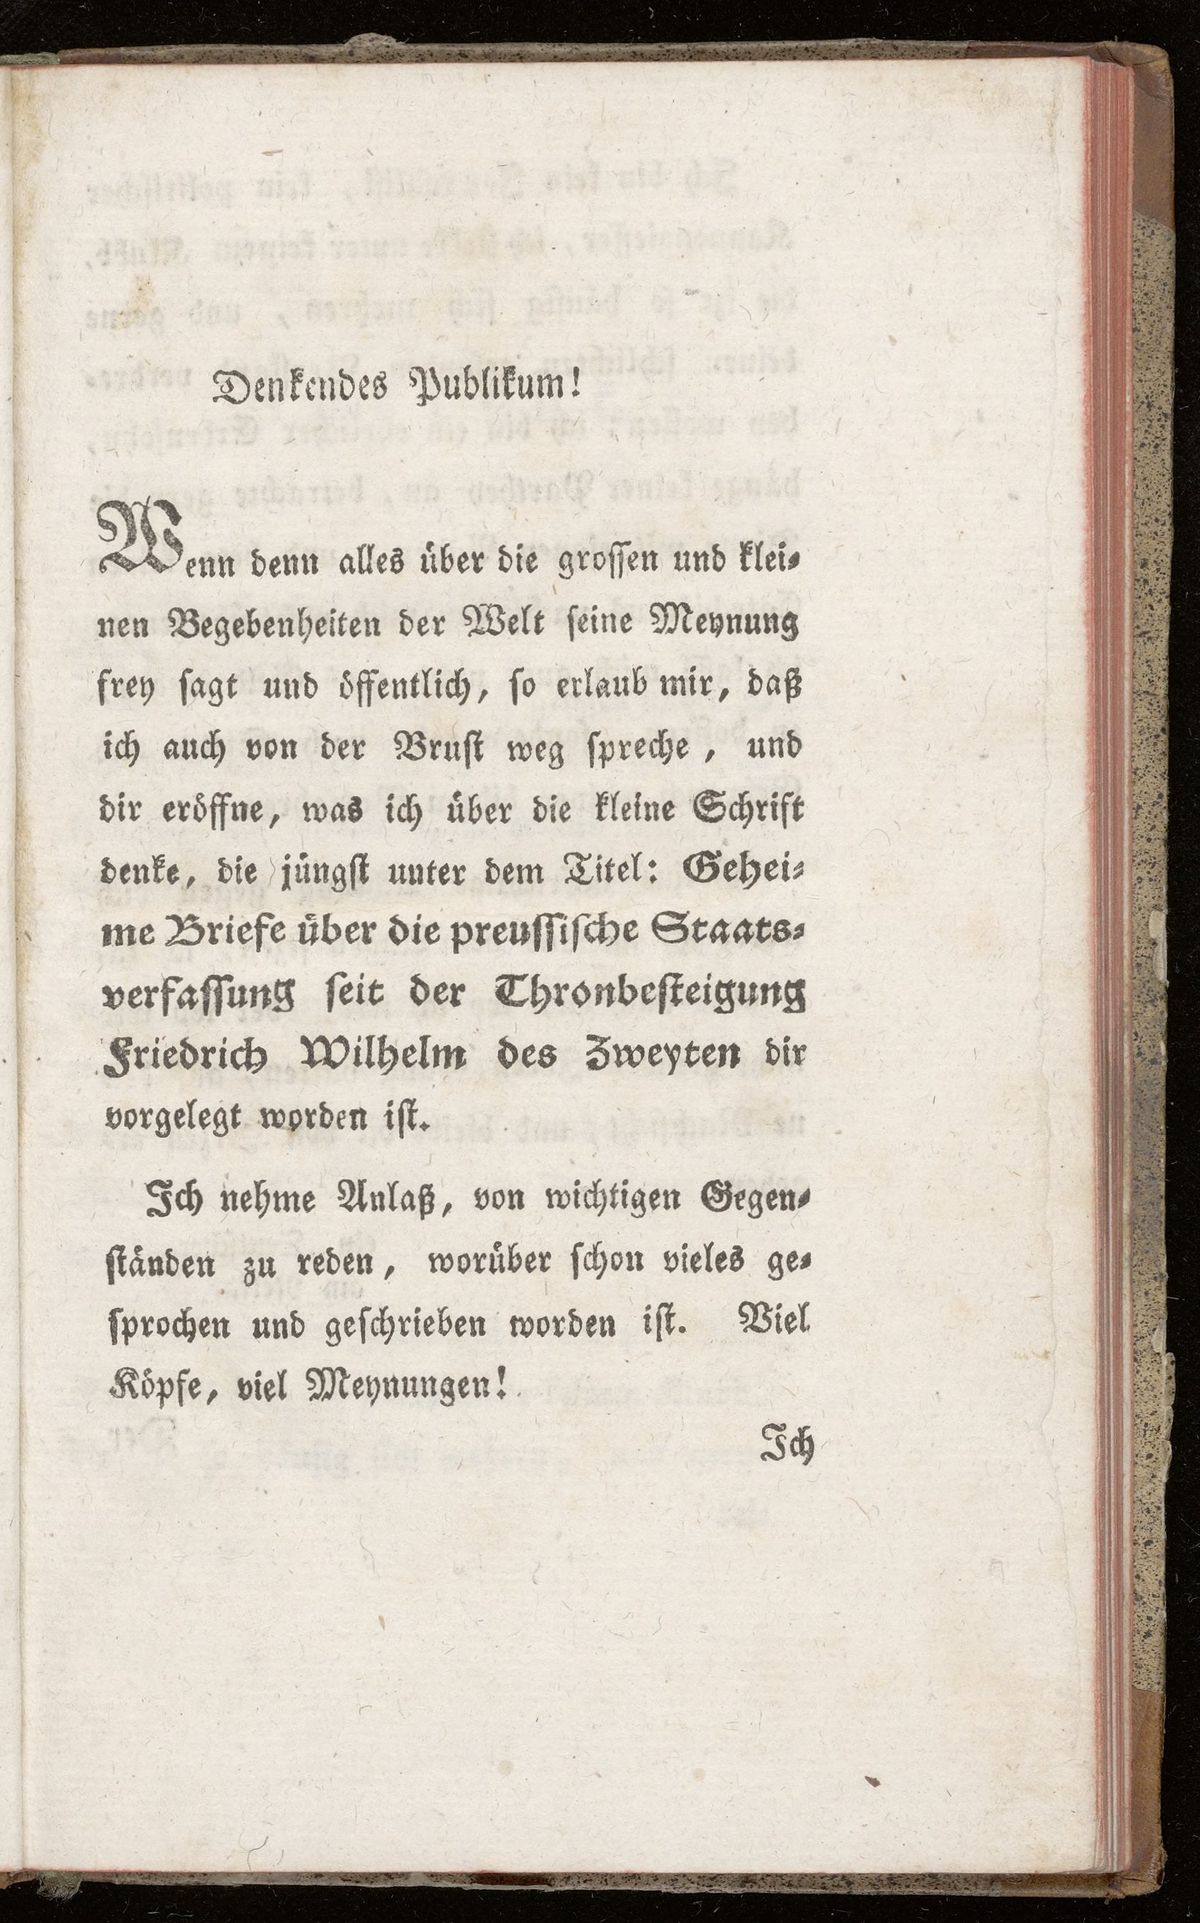 Denkendes Publikum!
Wenn denn alles über die grossen und klei-
nen Begebenheiten der Welt seine Meynung
frey sagt und öffentlich, so erlaub mir, daß
ich auch von der Brust weg spreche, und
dir eröffne, was ich über die kleine Schrift
denke, die jüngst unter dem Titel: Gehei-
me Briefe über die preussische Staats-
verfassung seit der Thronbesteigung
Friedrich Wilhelm des Zweyten dir
vorgelegt worden ist.
Ich nehme Anlaß, von wichtigen Gegen-
ständen zu reden, worüber schon vieles ge-
sprochen und geschrieben worden ist. Viel
Köpfe, viel Meynungen!
Ich